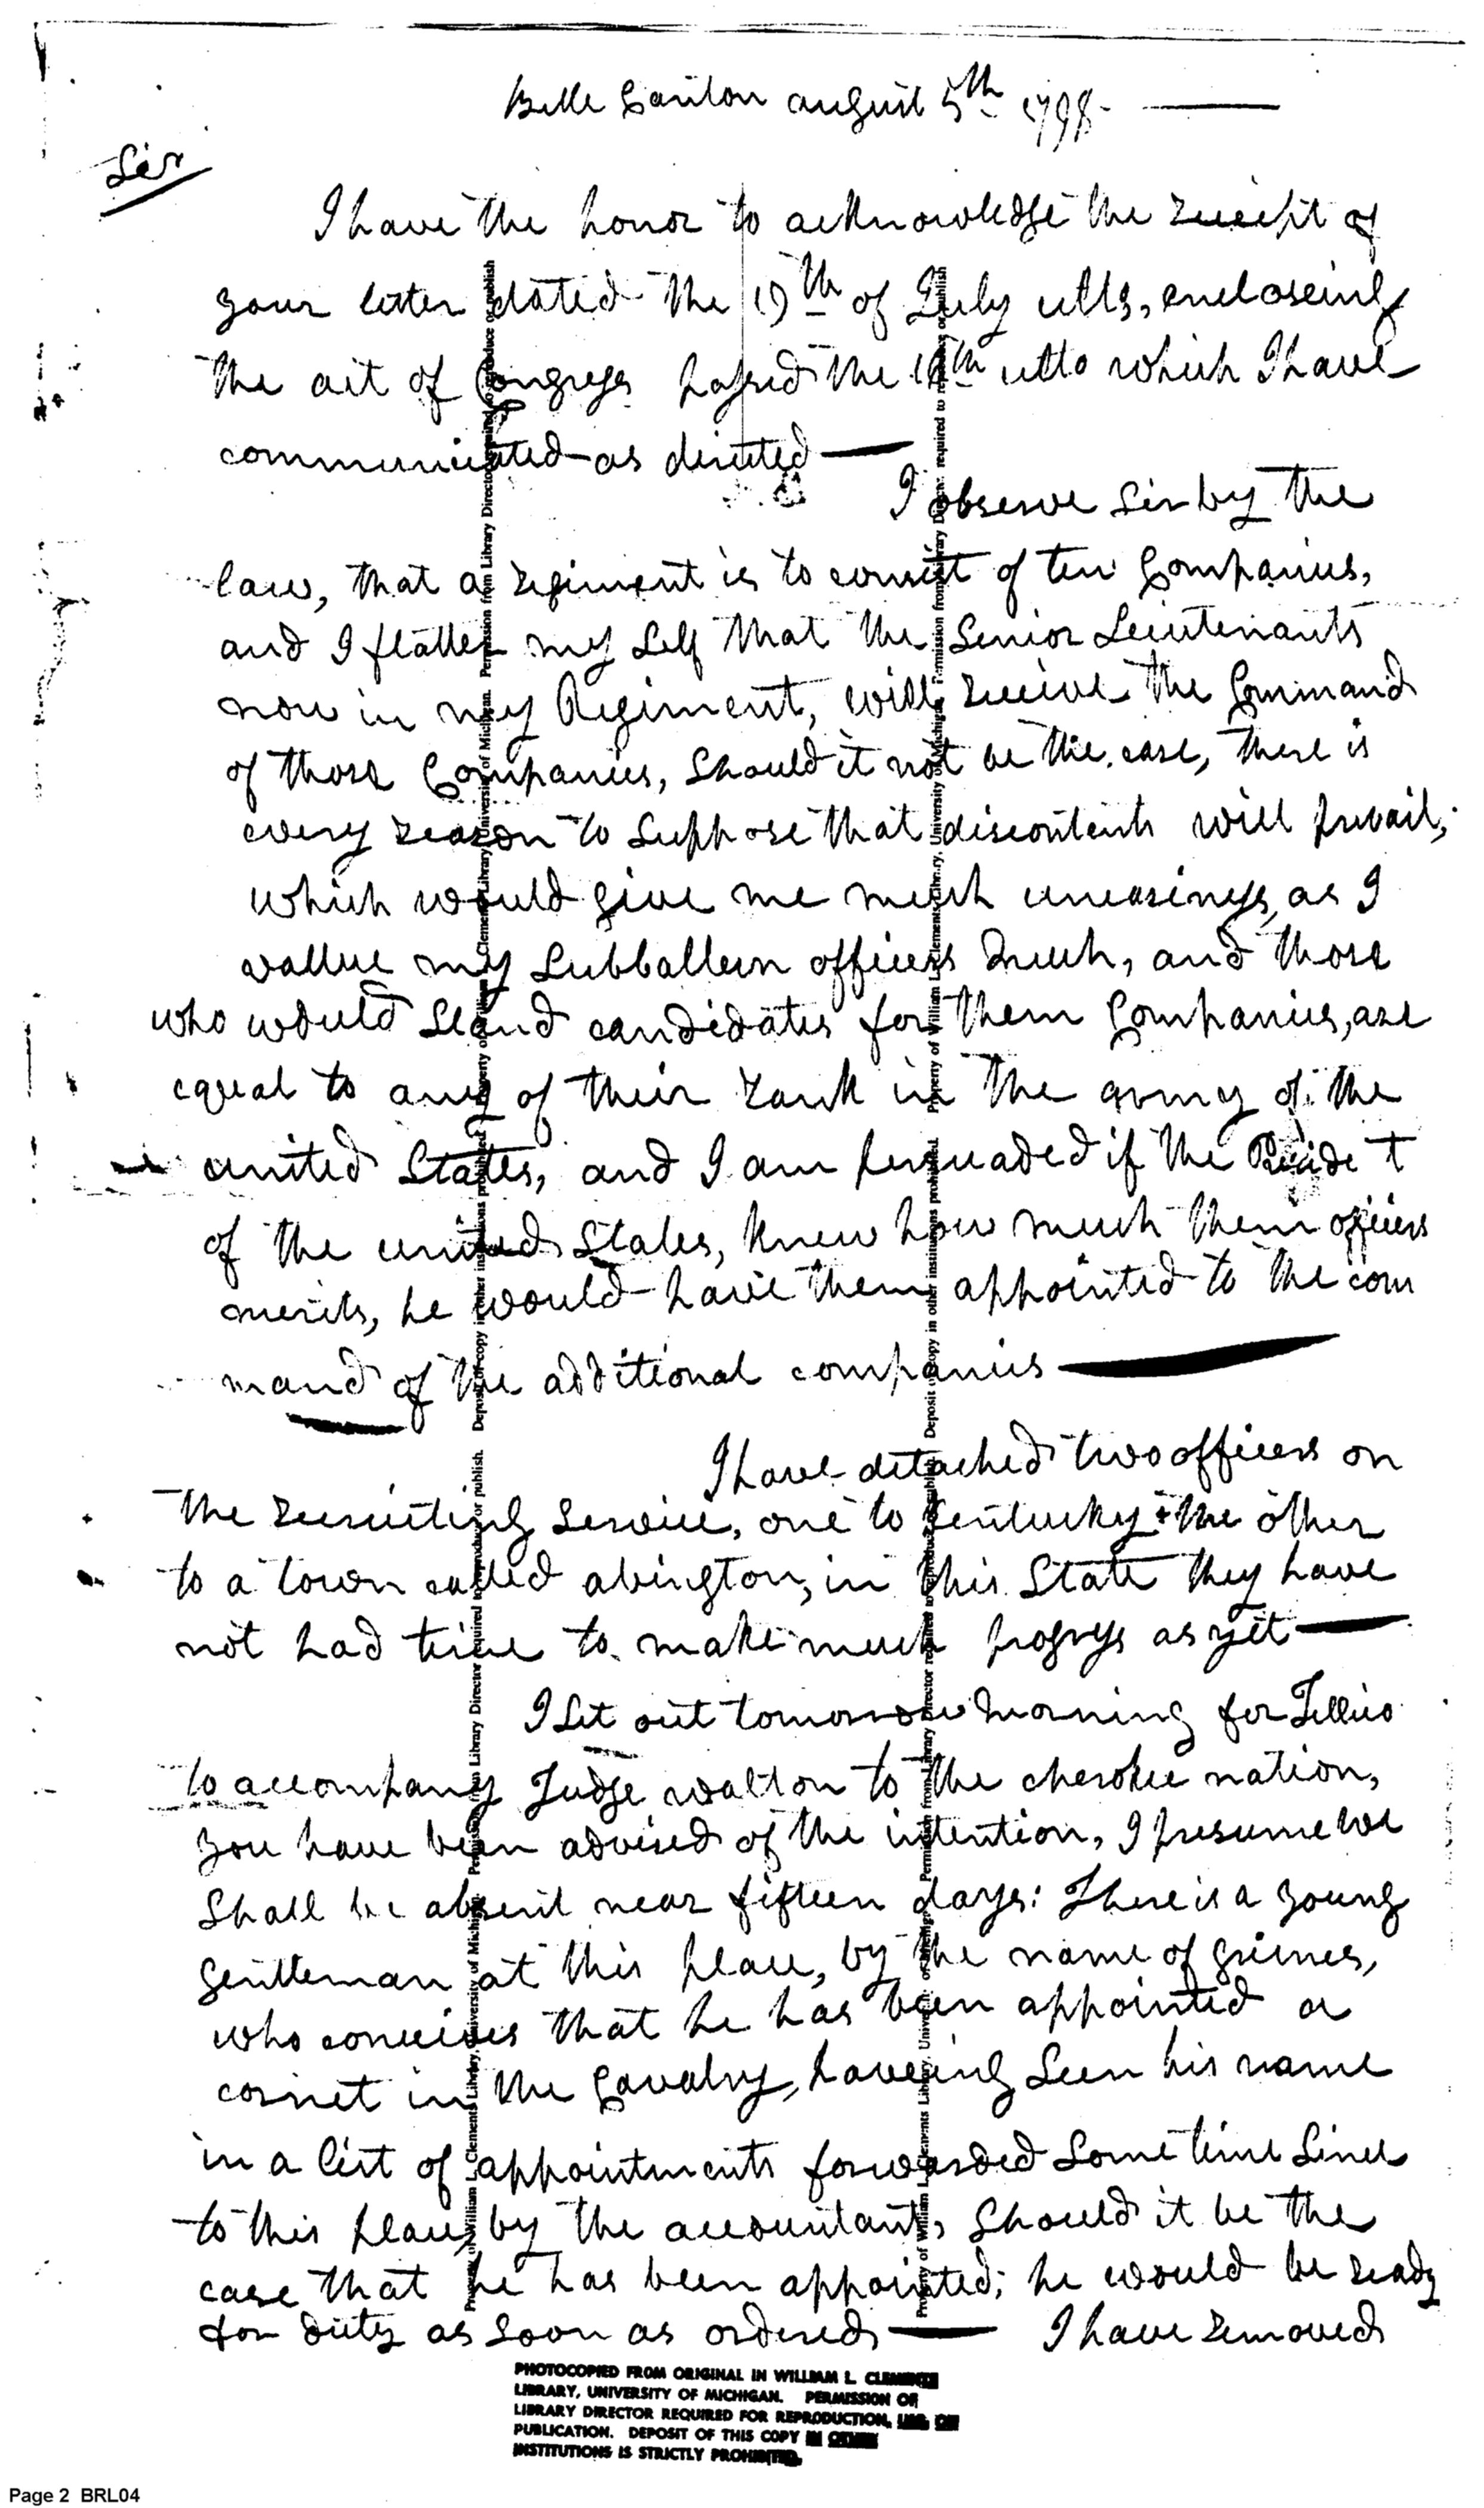 Belle Canton august 5th 1798
Sir
I have the honor to acknowledge the receipt of
your letter dated the 19th of July ullt, encloseing
the act of Congress passed the 16th ulto which I have
communicated as directed
I observe Sir by the
law, that a regiment is to consist of ten Companies,
and I flatter my Self that the Senior Lieutenants
now in my Regiment, will receive the Command
of those Companies, Should it not be the case, there is
every reason to Suppose that discontents will prevail,
which would give me much uneasiness, as I
vallue my Subballern officers much, and those
who would Stand candidates for them Companies, are
equal to any of their rank in the army of the
united States, and I am persuaded if the Preside t
of the united States, knew how much them officers
merits, he would have them appointed to the com
mand of the additional companies
I have detached two officers on
the recruiting Service, one to Kentucky & the other
to a town called abington, in this State they have
not had time to make much progress as yet
I Set out tomorrow morning for Tellico
to accompany Judge walton to the cherokee nation,
you have been advised of the intention, I presume we
Shall be absent near fifteen days: There is a young
gentleman at this place, by the name of grimes,
who conceives that he has been appointed a
cornet in the Cavalry, haveing Seen his name
in a list of appointments forwarded Some time Since
to this place by the accountant, Should it be the
case that he has been appointed; he would be ready
for duty as Soon as ordered I have removed
Property of William L. Clements Library, University of Michigan. Permission from Library Director required to reproduce or publish. Deposit of copy in other institutions prohibited.
PHOTOCOPIED FROM ORIGINAL IN WILLIAM L. CLEMENTS
LIBRARY, UNIVERSITY OF MICHIGAN. PERMISSION OF
LIBRARY DIRECTOR REQUIRED FOR REPRODUCTION,
PUBLICATION. DEPOSIT OF THIS COPY IN OTHER
INSTITUTIONS IS STRICTLY PROHIBITED.
Page 2 BRL04